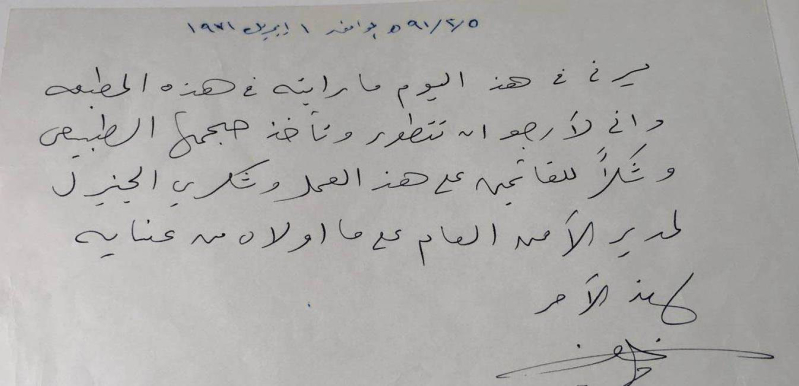 ٩١/٢/٥ ه يوافق ١ ابريل ١٩٧١
يسرني في هذ اليوم ما رايته في هذه المطبعه
واني لأرجو ان تتطور وتأخذ حجمها الطبيعي
وشكراً للقائمين على هذ العمل وشكري الجزيل
لمدير الأمن العام على ما اولاه من عنايه
لهذ الأمر